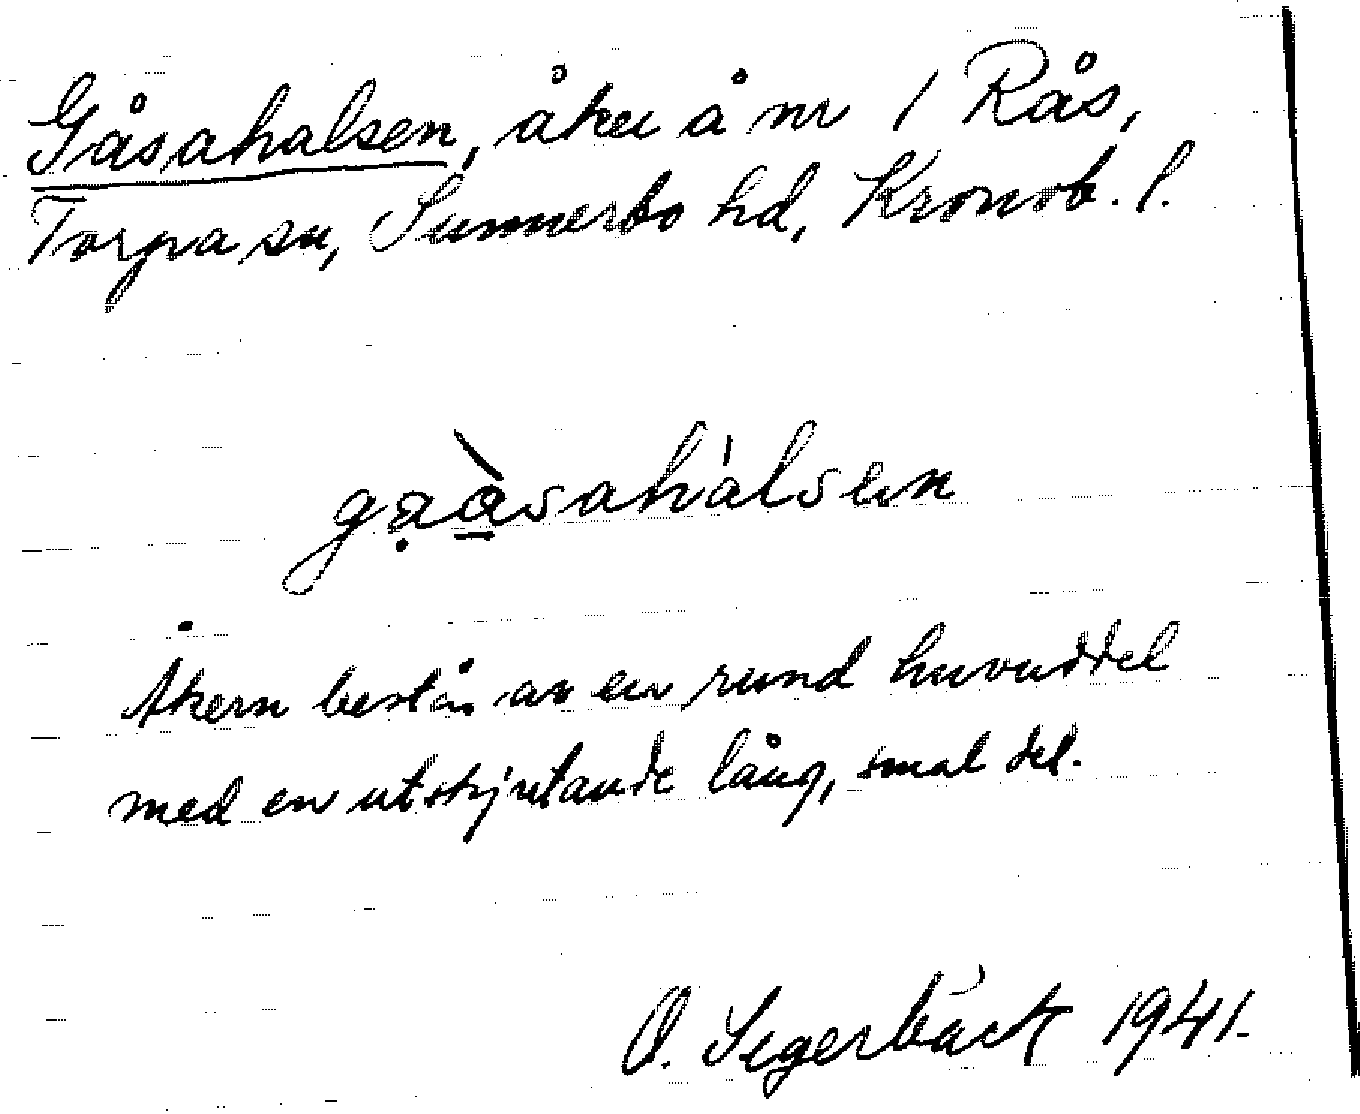 Gåsahalsen, åker å nr 1 Rås,
Torpa sn, Sunnerbo hd, Kronob. l.
gạà̱sah'alsen
Åkern består av en rund huvuddel
med en utskjutande lång, smal del.
O. Segerbäck 1941.